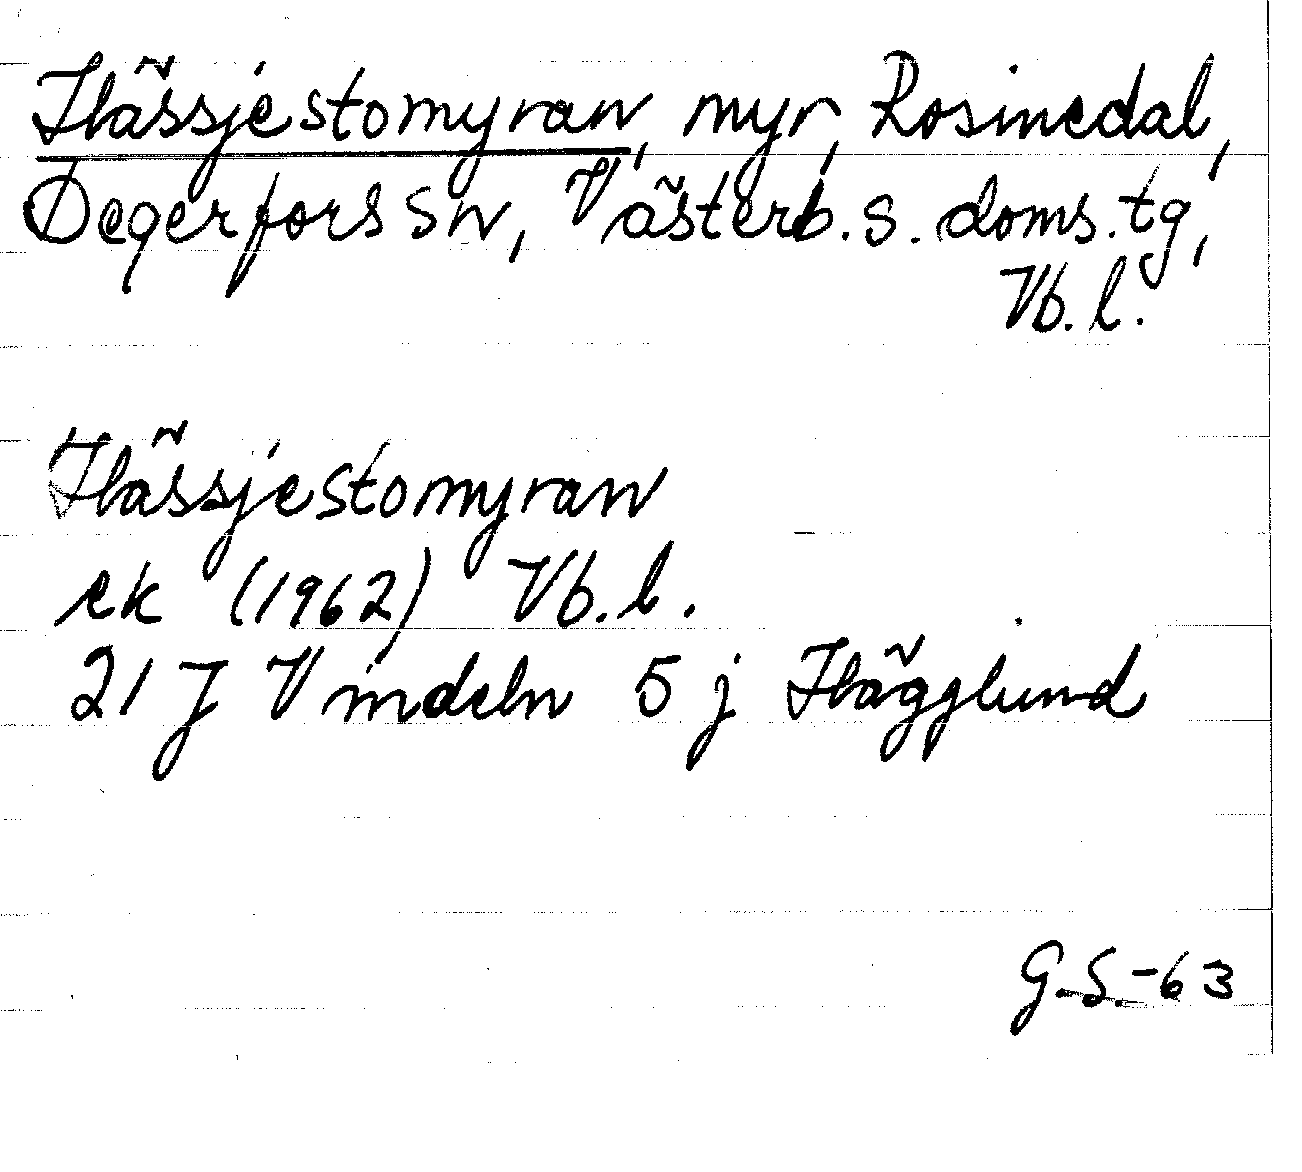 Hässjestomyran, myr, Rosinedal,
Degerfors sn, Västerb. s. doms. tg,
Vb. l.
Hässjestomyran
ek (1962) Vb. l.
21 J Vindeln 5 j Hägglund
G. S. -63